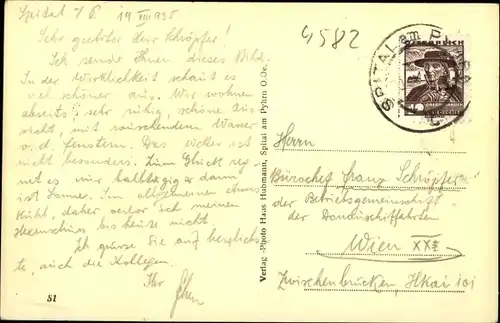 Spital a/P. 19.VIII 1935
Sehr geehrter Herr Schöpfer!
Ich sende Ihnen dieses Bild.
In der Wirklichkeit schaut es
viel schöner aus. Wir wohnen
abseits, sehr ruhig, schöne Aus
sicht, mit rauschendem Wasser
v. d. Fenstern. Das Wetter ist
nicht besonders. Zum Glück reg-
net es nur halbtägig dann
ist Sonne. Im allgemeinen etwas
kühl, daher verlor ich meinen
Hexenschuss bis heute nicht
Ich grüsse Sie auf herzlichs
te, auch die Kollegen.
Ihr
51
Verlag-Photo Haus Hubmann, Spital am Pyhrn O.Oe.
4582
SPITAL am P
ÖSTERREICH
Herrn
Bürochef Franz Schöpfer!
der Betriebsgemeinschaft
der Donauschiffahrten
Wien XX
Zwischenbrücken, Hkai 101